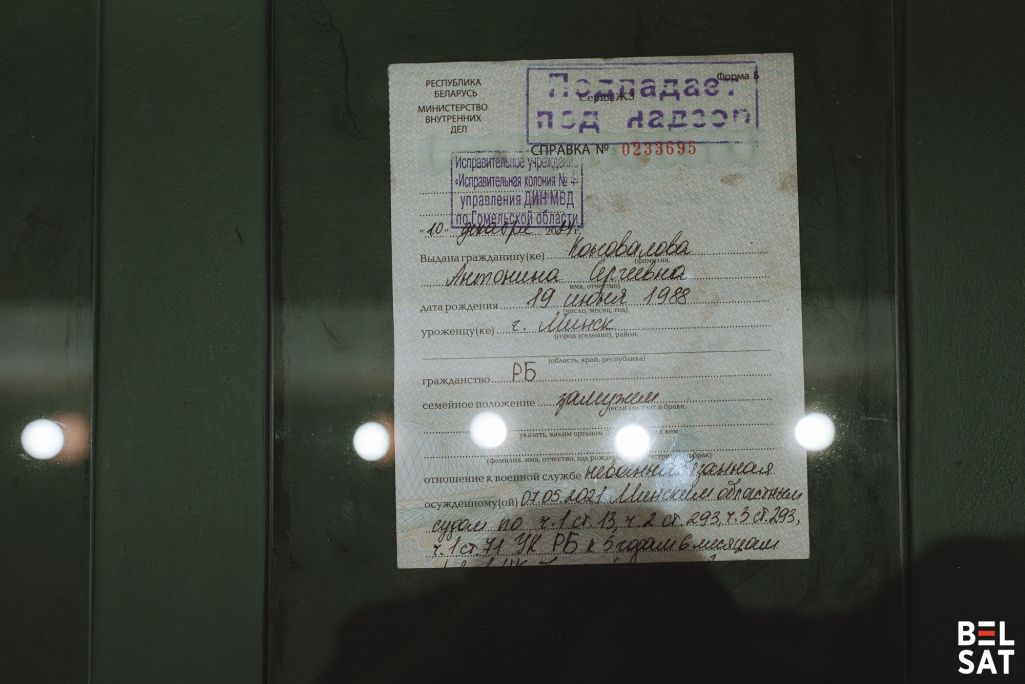 РЕСПУБЛИКА
БЕЛАРУСЬ
МИНИСТЕРСТВО
ВНУТРЕННИХ
ДЕЛ
Форма Б
Подпадает
Серия ЖЗ
под надзор
СПРАВКА № 0233695
Исправительное учреждение
«Исправительная колония № 4»
управления ДИН МВД
по Гомельской области
"10" декабря 20 г.
Выдана гражданину(ке) Коновалова
(фамилия,
Антонина Сергеевна
имя, отчество)
дата рождения 19 июня 1988
(число, месяц, год)
уроженцу(ке) г. Минск
(город (селение), район,
(область, край, республика)
гражданство РБ
семейное положение замужем
(если состоит в браке,
указать, каким органом с кем
(фамилия, имя, отчество, год рожд брак)
отношение к военной службе невоеннообязанная
осужденному(ой) 07.05.2021 Минским областным
судом по ч.1 ст.13, ч.2 ст.293, ч.3 ст.293,
ч.1 ст.71 УК РБ к 5 годам 6 месяцам
BEL
SAT